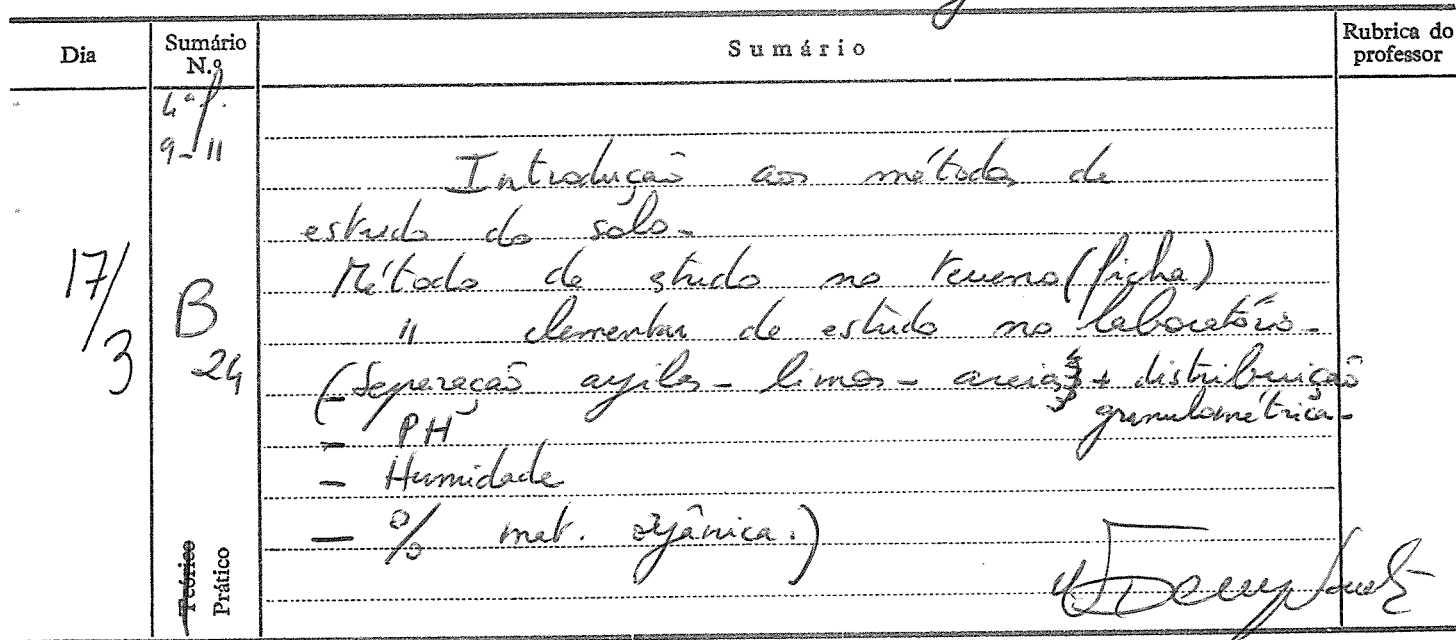 Dia
Sumário N.º
Sumário
Rubrica do professor
4ª f.
9-11
17/3
B
24
Introdução aos métodos de
estudo do solo-
Método de estudo no terreno (ficha)
" elementar de estudo no laboratório-
(- Separação argilas - limos - areias + distribuição
granulométrica-
- PH
- Humidade
- % mat. orgânica.)
Teórico
Prático